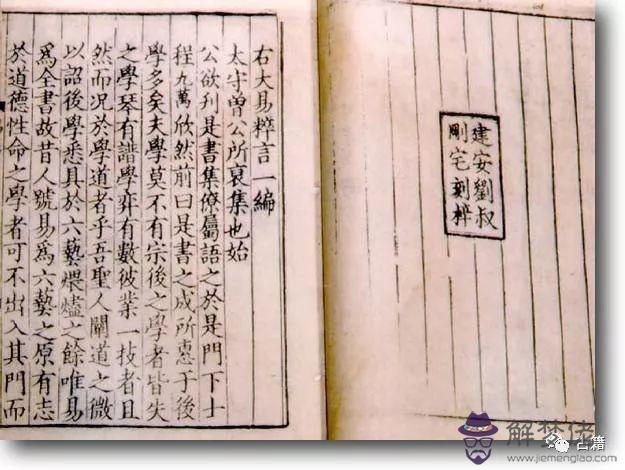 建安劉叔
剛宅刻梓
右大易粹言一編
太守曾公所裒集也始
公欲刋是書集僚屬語之於是門下士
程九萬欣然前曰是書之成所惠于後
學多矣夫學莫不有宗後之學者皆失
之學琴有譜學弈有數彼業一技者且
然而况於學道者乎吾聖人闡道之微
以詔後學悉具於六藝煨燼之餘唯易
爲全書故昔人號易爲六藝之原有志
於道德性命之學者可不出入其門而
解梦佬
古籍
www.jiemenglao.com